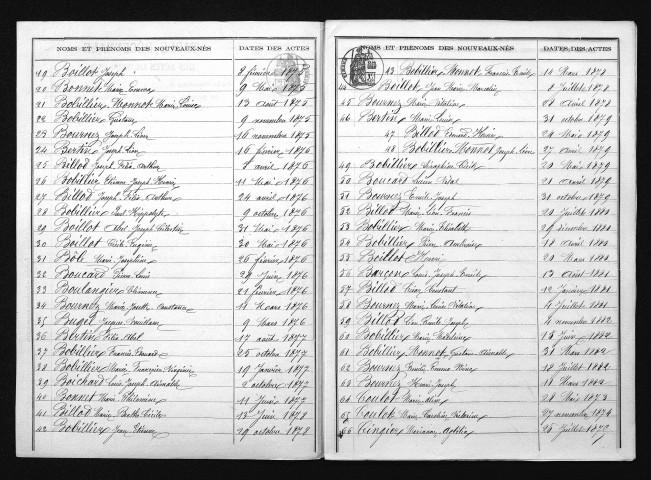 NOMS ET PRÉNOMS DES NOUVEAUX-NÉS DATES DES ACTES
19 Boillot Joseph 8 février 1875
20 Bonnet Marie Emma 9 Mai 1875
21 Bobillier Monnot Marie Louise 13 août 1875
22 Bobillier Gustave 9 novembre 1875
23 Bournez Joseph Léon 16 novembre 1875
24 Bertin Joseph Léon 16 février 1876
25 Billod Joseph Félix Arthur 1 avril 1876
26 Bobillier Etienne Joseph Henri 11 Mai 1876
27 Billod Joseph Félix Arthur 24 avril 1876
28 Bobillier Paul Hippolyte 9 octobre 1876
29 Boillot Abel Joseph Célestin 31 Mai 1876
30 Boillot Cécile Eugénie 30 Mai 1876
31 Bole Marie Joséphine 26 février 1876
32 Boucard Pierre Louis 28 Juin 1876
33 Boulanger février 1876
34 Bournez Marie Constance 11 Mars 1876
35 Bugei Jacques 9 Mars 1876
36 Bertin Félix Abel 17 août 1877
37 Bobillier Francis 25 octobre 1877
38 Bobillier Marie Françoise Virginie 19 Janvier 1877
39 Bouchard Louis Joseph 2 octobre 1877
40 Bonnet Marie Philomène 11 Juin 1877
41 Billod Marie Berthe Cécile 13 Juin 1878
42 Bobillier Jean Etienne 29 octobre 1878
NOMS ET PRÉNOMS DES NOUVEAUX-NÉS DATES DES ACTES
43 Bobillier Monnot Francis Emile 14 Mars 1878
44 Boillot Jean Marie Marcelin 8 Juillet 1878
45 Bournez Marie 28 avril 1878
46 Bertin Marie Louis 31 octobre 1879
47 Billod Henri 24 Mai 1879
48 Bobillier Monnot Joseph Léon 27 avril 1879
49 Bobillier Séraphin 20 Mai 1879
50 Boucard Lucien Vital 21 avril 1879
51 Bournez Emile Joseph 31 octobre 1879
52 Billod Marie Léon Francis 20 Juillet 1880
53 Bobillier Marie Elisabeth
54 Bobillier Pierre Ambroise 18 avril 1880
55 Boillot Henri 20 Mars 1880
56 Barçon Louis Joseph Emile 13 août 1881
57 Billod César Constant 12 Janvier 1881
58 Bournez Marie Louise 4 Juillet 1881
59 Billod Léon Emile Joseph 4 novembre 1882
60 Bobillier Marie Madeleine 15 Juin 1882
61 Bobillier Monnot Gustave 31 Mars 1882
62 Bournez Emilie Emma 18 Juillet 1882
63 Bournez Henri Joseph 18 Mars 1882
64 Coulot Marie 28 Mai 1873
65 Coulot Marie Caroline 27 novembre 1874
66 25 Juillet 1872